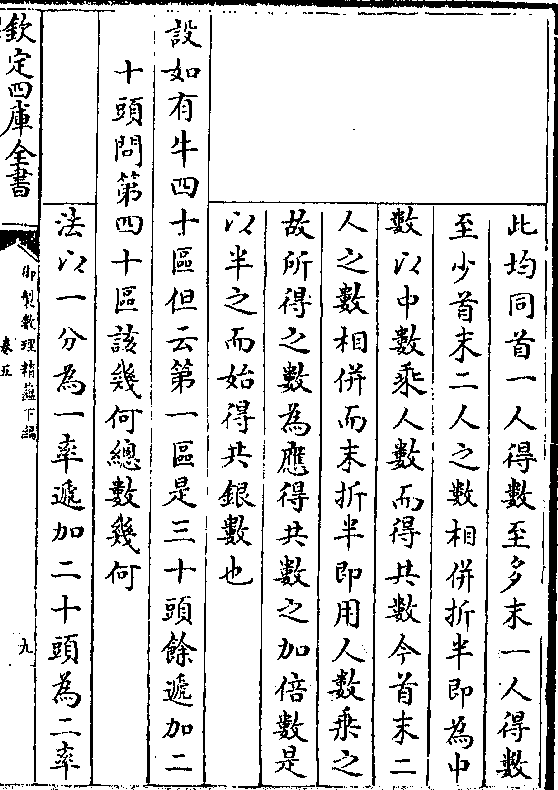 此均同首一人得數至多末一人得數
至少首末二人之數相併折半即為中
數以中數乘人數而得共數今首末二
人之數相併而未折半即用人數乘之
故所得之數為應得共數之加倍數是
以半之而始得共銀數也
設如有牛四十區但云第一區是三十頭餘遞加二
十頭問第四十區該幾何總數幾何
法以一分為一率遞加二十頭為二率
欽定四庫全書
御製數理精蘊下編
卷五
九